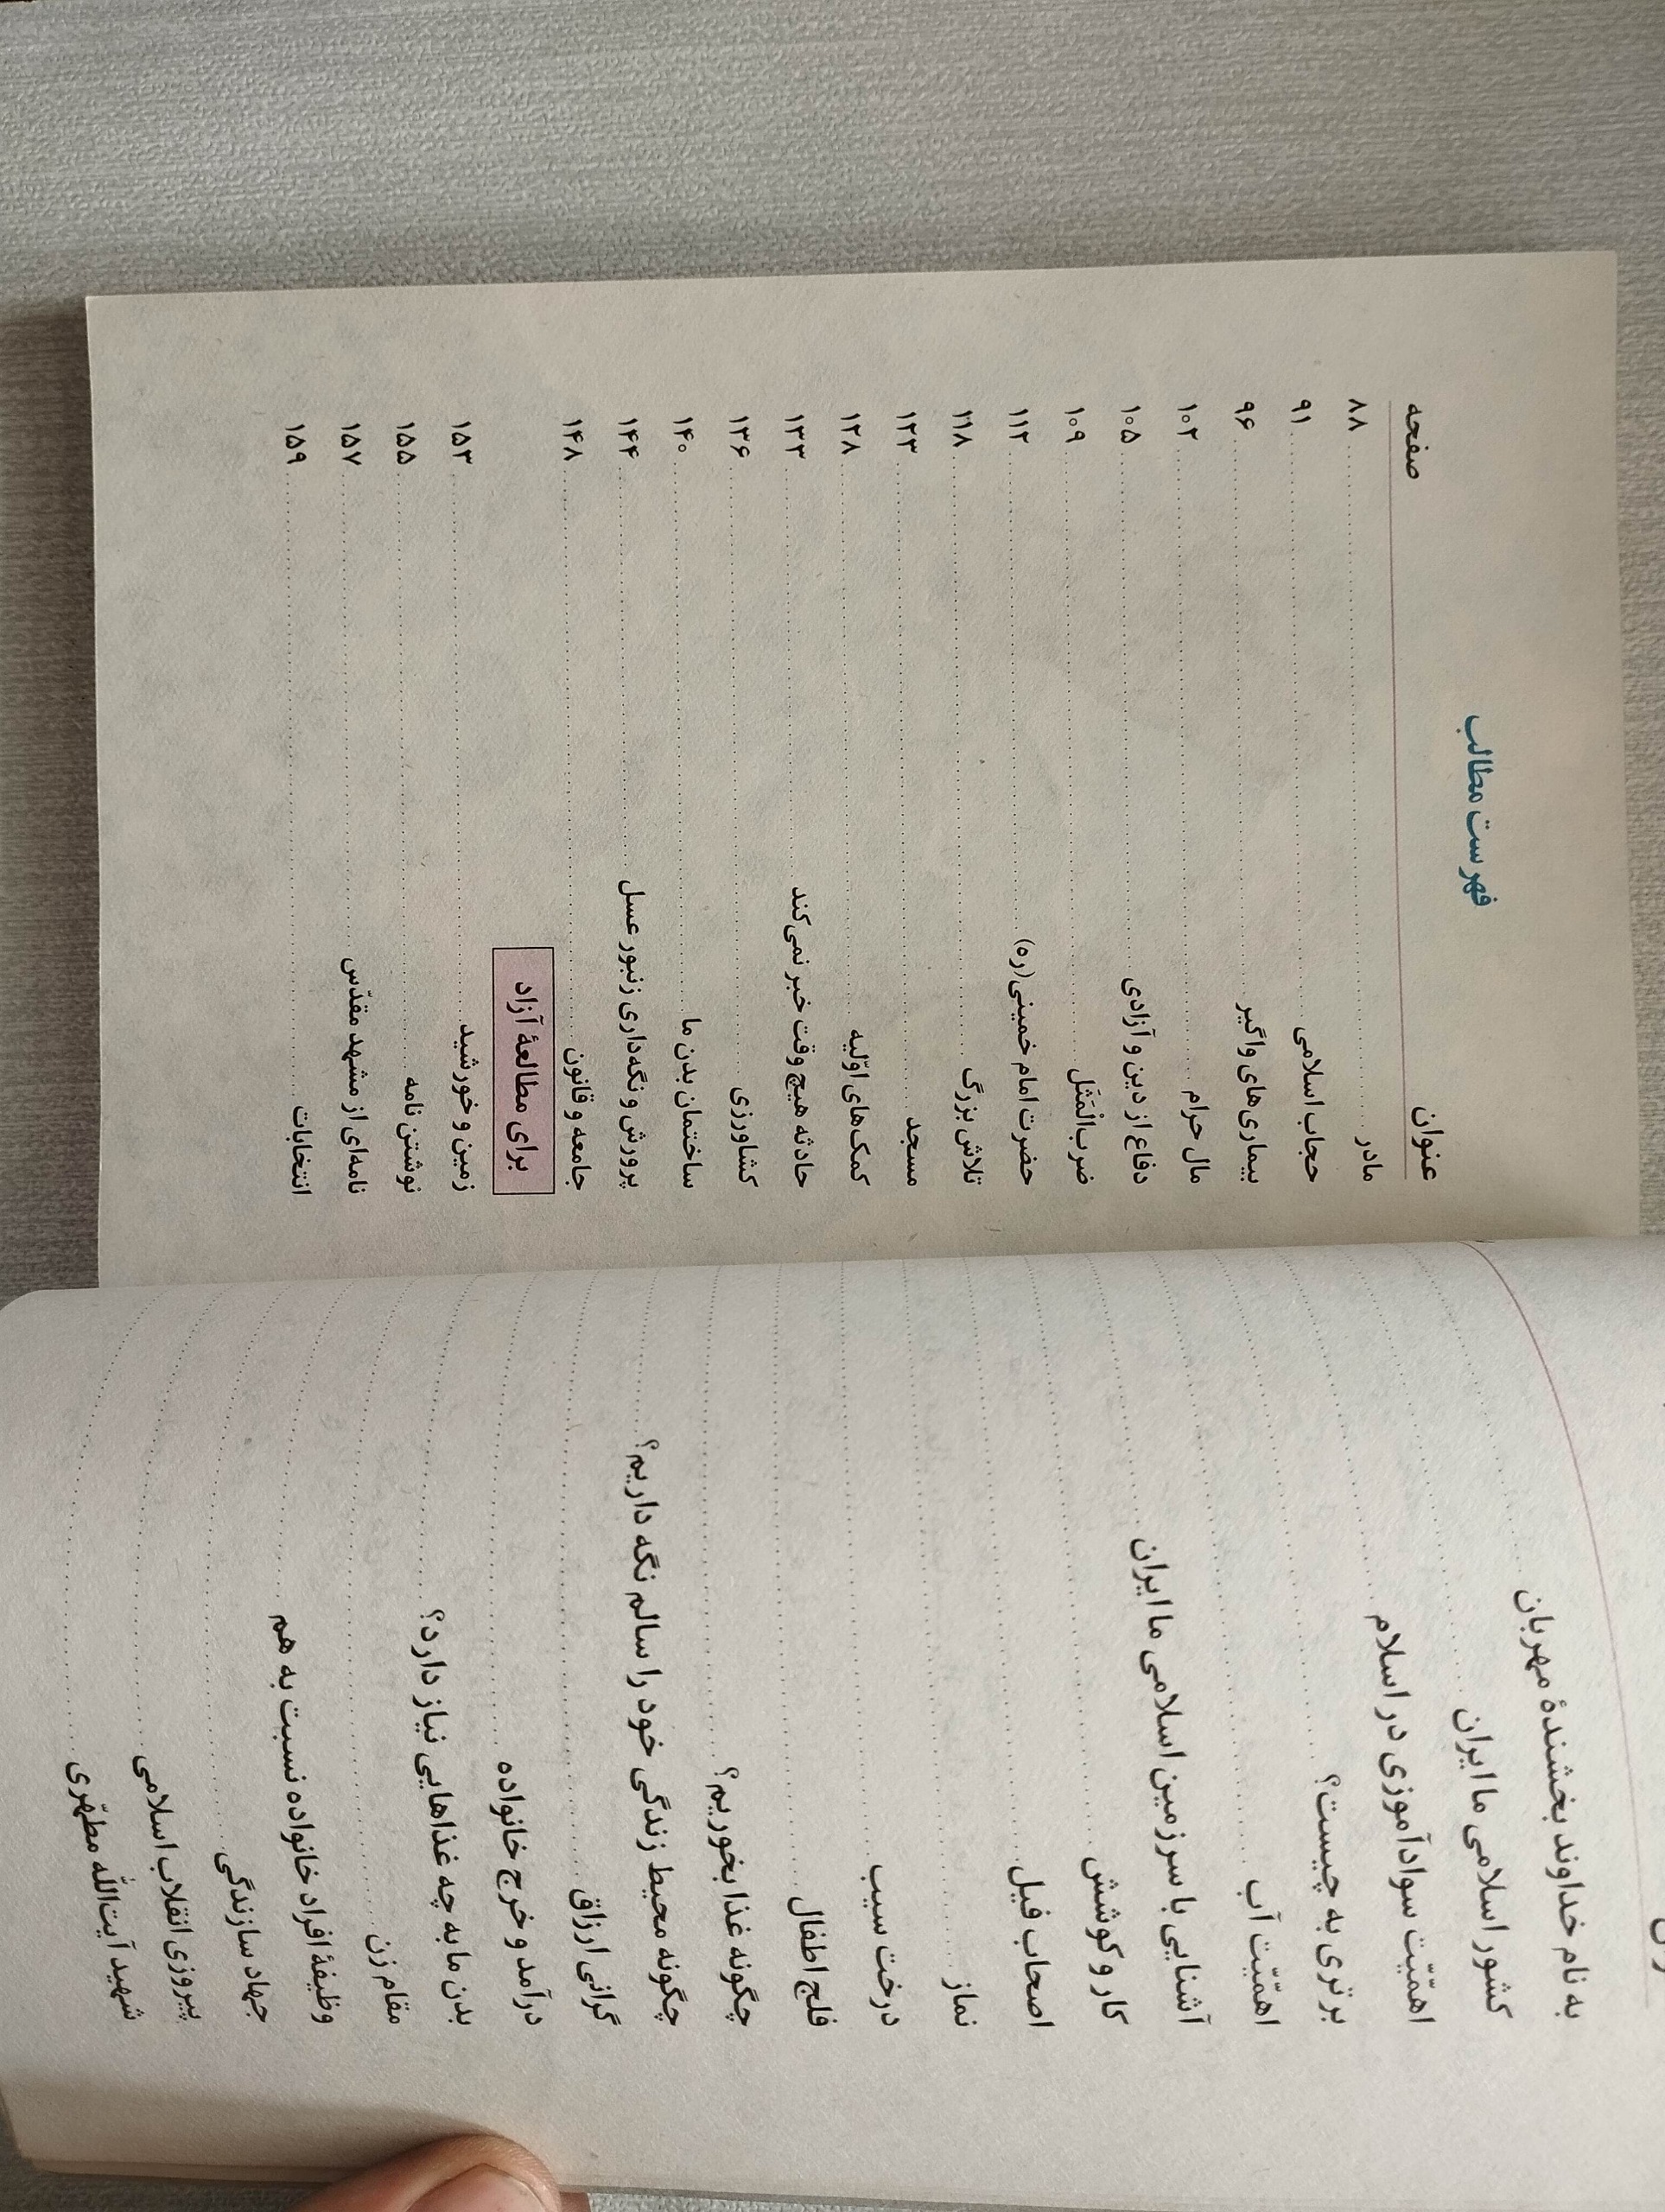 به نام خداوند بخشندهٔ مهربان
کشور اسلامی ما ایران
اهمّیّت سوادآموزی در اسلام
برتری به چیست؟
اهمّیّت آب
آشنایی با سرزمین اسلامی ما ایران
کار و کوشش
اصحاب فیل
نماز
درخت سیب
فلج اطفال
چگونه غذا بخوریم؟
چگونه محیط زندگی خود را سالم نگه داریم؟
گرانی ارزاق
درآمد و خرج خانواده
بدن ما به چه غذاهایی نیاز دارد؟
مقام زن
وظیفهٔ افراد خانواده نسبت به هم
جهاد سازندگی
پیروزی انقلاب اسلامی
شهید آیت‌الله مطهّری
فهرست مطالب
عنوان صفحه
مادر ۸۸
حجاب اسلامی ۹۱
بیماری‌های واگیر ۹۶
مال حرام ۱۰۲
دفاع از دین و آزادی ۱۰۵
ضرب‌الْمَثَل ۱۰۹
حضرت امام خمینی (ره) ۱۱۲
تلاش بزرگ ۱۱۸
مسجد ۱۲۳
کمک‌های اوّلیه ۱۲۸
حادثه هیچ وقت خبر نمی‌کند ۱۳۳
کشاورزی ۱۳۶
ساختمان بدن ما ۱۴۰
پرورش و نگه‌داری زنبور عسل ۱۴۴
جامعه و قانون ۱۴۸
برای مطالعهٔ آزاد
زمین و خورشید ۱۵۳
نوشتن نامه ۱۵۵
نامه‌ای از مشهد مقدّس ۱۵۷
انتخابات ۱۵۹